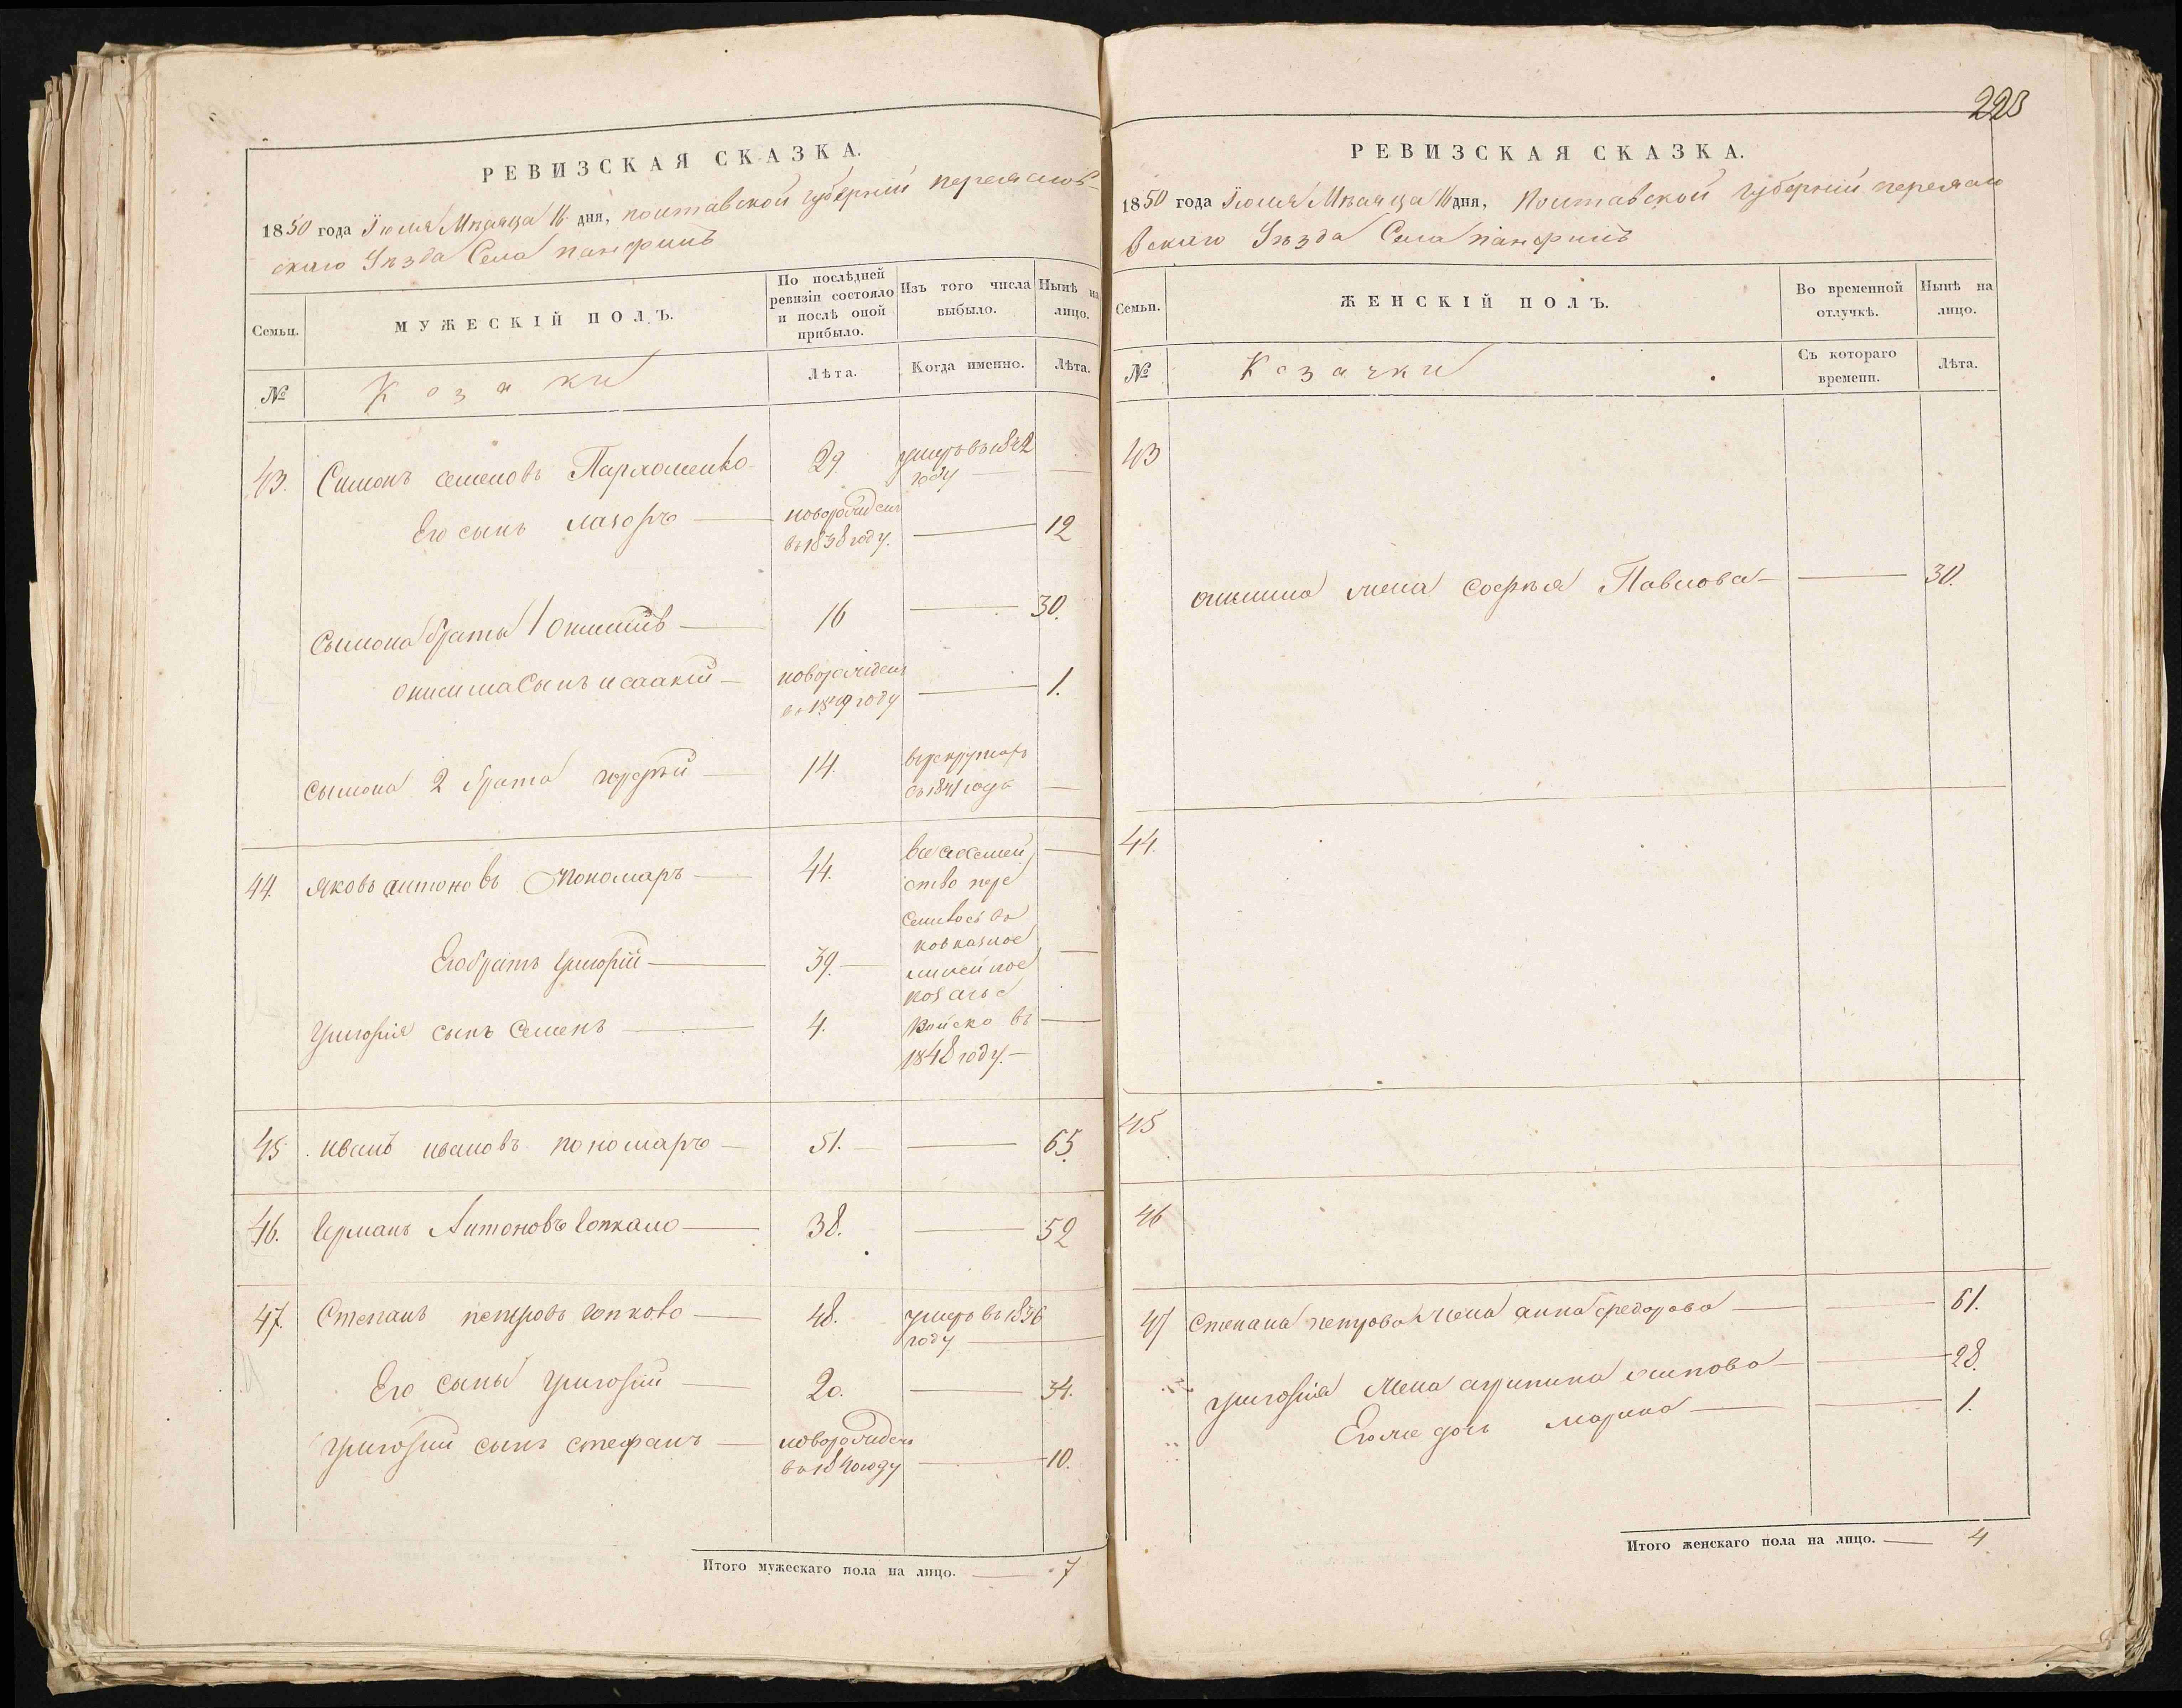 РЕВИЗСКАЯ СКАЗКА.
1850 года Іюля Мѣсяца 16 дня, полтавской губерніи переяслов-
скаго Уѣзда Села панфилъ
Семьи.
МУЖЕСКІЙ ПОЛЪ.
По послѣдней ревизіи состояло и послѣ оной прибыло.
Изъ того числа выбыло.
Нынѣ на лицо.
№
Козаки
Лѣта.
Когда именно.
Лѣта.
43. Симонъ семеновъ Пархоменко 29 умеръ въ 1842 году
Его сынъ лазоръ новорожденъ въ 1838 году. 12
Сымона браты 1 Онисимъ 16 30.
онисима Сынъ исаакій новорожденъ в 1849 году 1.
сымона 2 брата 14. в рекрутахъ съ 1841 года
44. яковъ антоновъ Пономаръ 44. все семей
ство пере
Его братъ григорій 39. селилось въ
кавказкое
линейное
козачье
григорія сынъ Семенъ 4. Войско въ
1848 году.
45 иванъ ивановъ пономаръ 51. 65.
46. Германъ Антоновъ 38. 52
47. Степанъ петровъ 48. умеръ въ 1846 году
Его сынъ григорій 20. 34.
григорій сынъ стефанъ новорожденъ в 1840 году 10.
Итого мужескаго пола на лицо. 7
223
РЕВИЗСКАЯ СКАЗКА.
1850 года Іюля Мѣсяца 16 дня, Полтавской губерніи переясло
вскаго Уѣзда Села панфилъ
Семьи.
ЖЕНСКІЙ ПОЛЪ.
Во временной отлучкѣ.
Нынѣ на лицо.
№
Козачки
Съ котораго времени.
Лѣта.
43
онисима жена софья Павлова 30.
44.
45
46
47 Степана петрова жена анна федорова 61.
григорія жена агрипина осипова 28.
Его же дочь марина 1.
Итого женскаго пола на лицо. 4